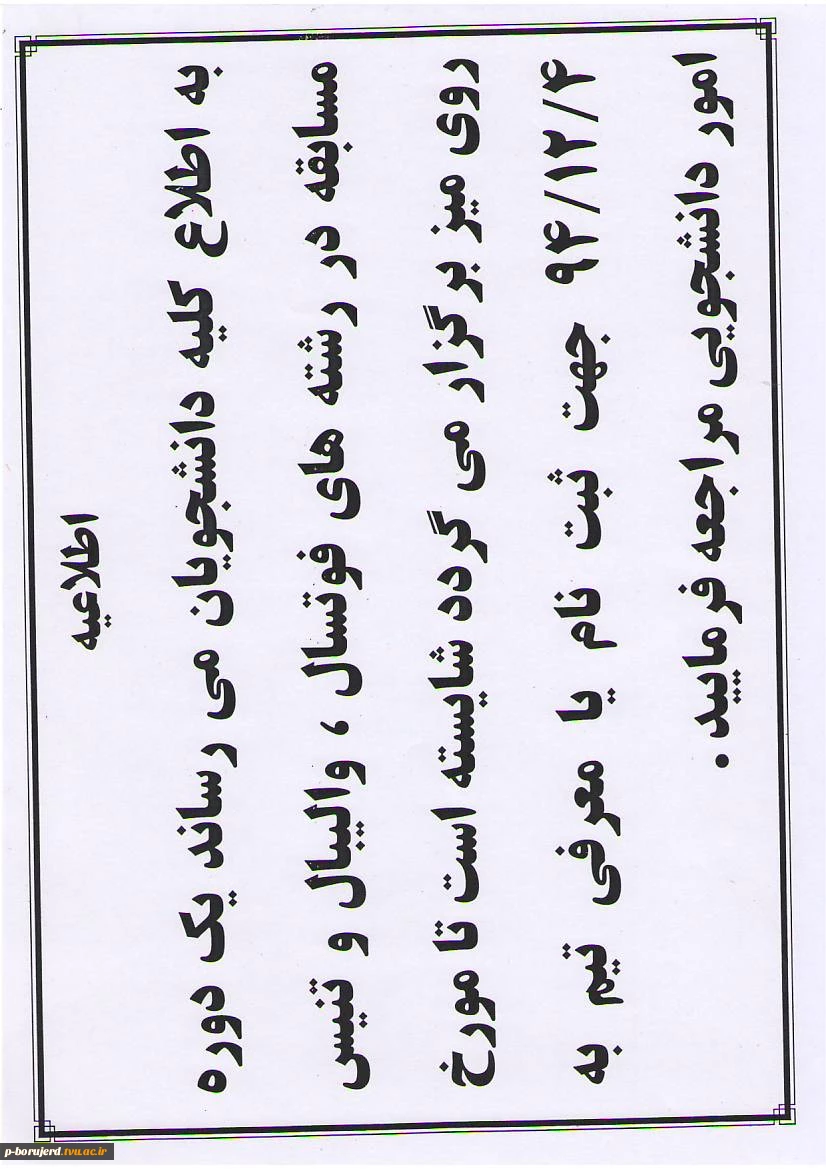 اطلاعیه
به اطلاع کلیه دانشجویان می رساند یک دوره
مسابقه در رشته های فوتسال ، والیبال و تنیس
روی میز برگزار می گردد شایسته است تا مورخ
۹۴/۱۲/۴ جهت ثبت نام یا معرفی تیم به
امور دانشجویی مراجعه فرمایید .
p-borujerd.tvu.ac.ir